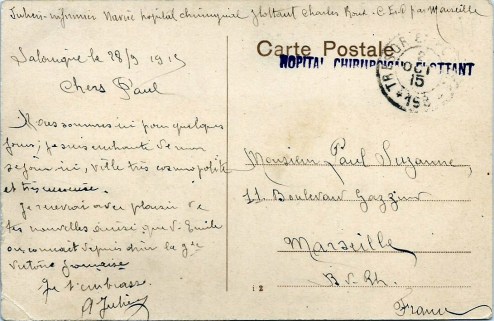 Julien infirmier Navire hôpital chirurgical flottant Charles Roux - C.E.O par Marseille
Carte Postale
HOPITAL CHIRURGICAL FLOTTANT
TRESOR E
OCT
15
Salonique le 28/9 1915
Chers Paul
Nous sommes ici pour quelques
jours; je suis enchanté de mon
séjour ici, ville très cosmopolite
et très
Je recevrai avec plaisir de
tes nouvelles ainsi que d'Emile
on connait depuis hier la gde
victoire française
Je t'embrasse
A Julien
Monsieur Paul Suzanne,
11. Boulevard Gazzino
Marseille
B-du-Rh.
France
12